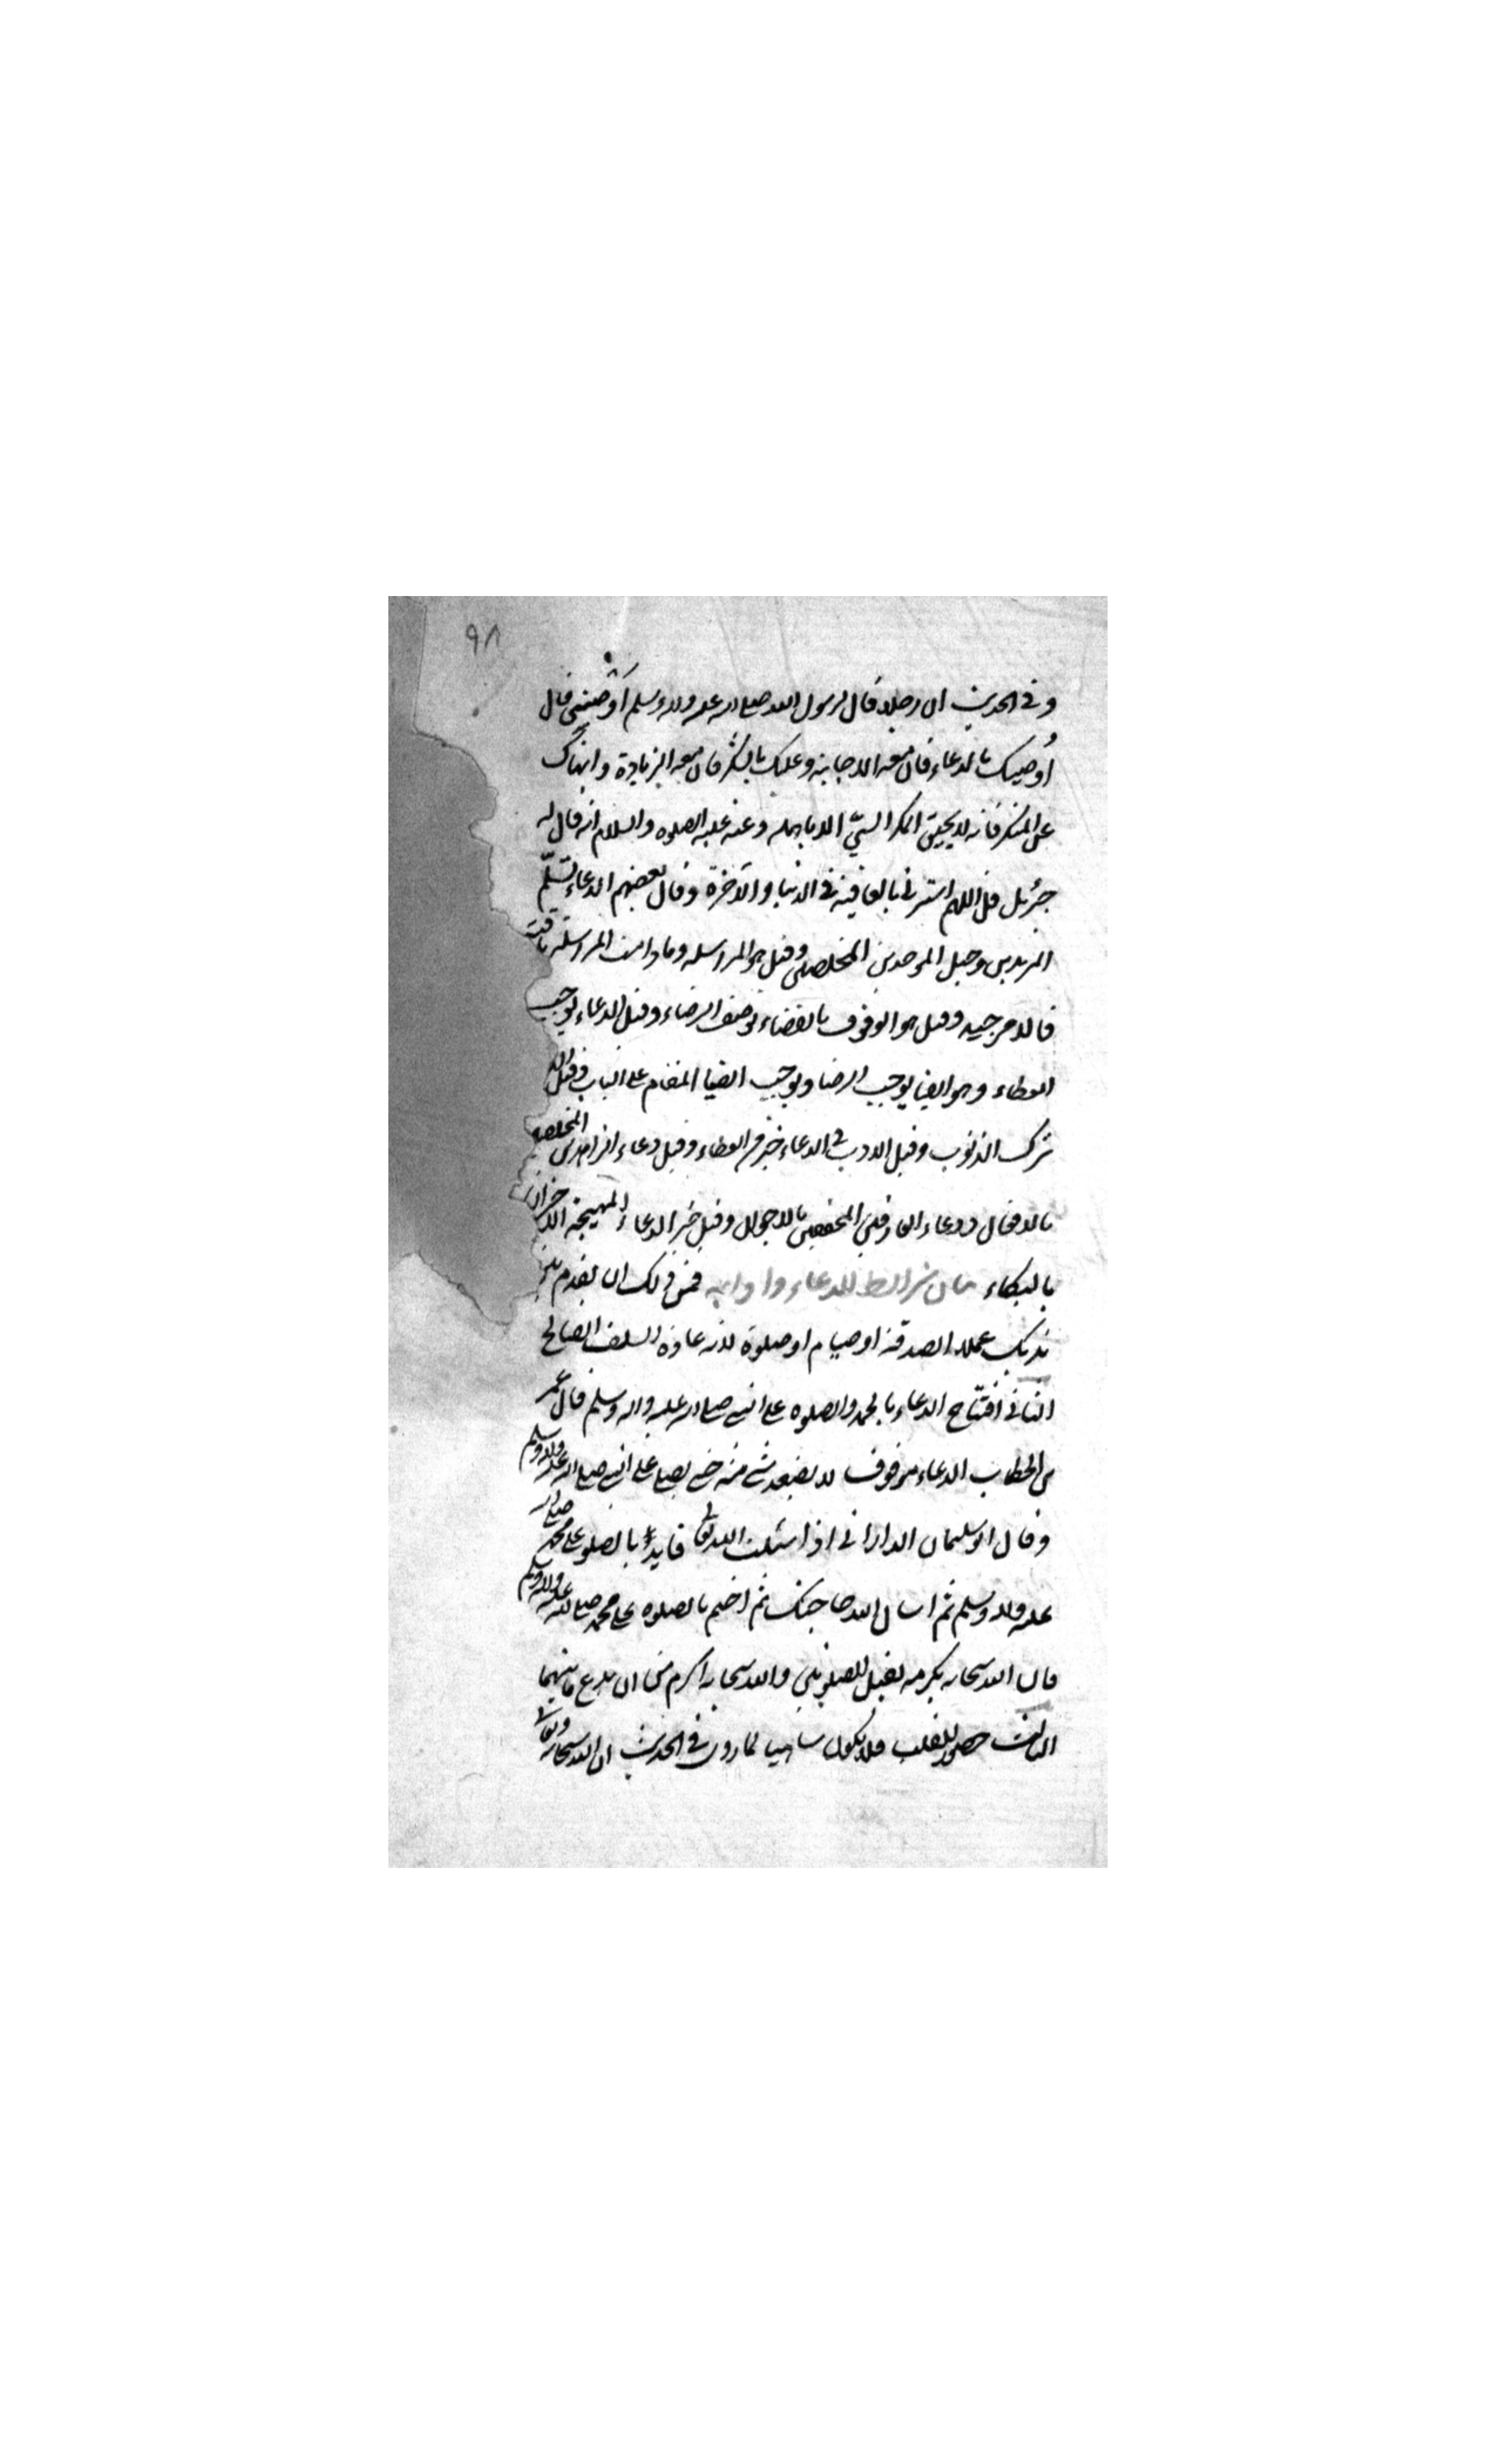 ٩٨
وفي الحديث ان رجلا قال لرسول الله صلى الله عليه وآله وسلم أوصني قال
أوصيك بالدعاء فان معه الاجابة وعليك بالشكر فان معه الزيادة وانهاك
عن المنكر فانه لا يحيق المكر السيّئ الا باهله وعنه عليه الصلوه والسلام انه قال له
جبرئل قل اللهم استرني بالعافية في الدنيا والآخرة وقال بعضهم الدعاء سلّم
المريدين وحبل الموحدين المخلصين وقيل هو المراسله وما دامت المراسلة باقية
فالامر جيد وقيل هو الوقوف بالقضاء بوصف الرضاء وقيل الدعاء يوجب
العطاء وهو ايضا يوجب الرضا ويوجب ايضا المقام على الباب وقيل
ترك الذنوب وقيل الادب في الدعاء خير من العطاء وقيل دعاء الزاهدين المخلصين
بالافعال ودعاء العارفين المحققين بالاحوال وقيل خير الدعاء المهيجة
بالبكاء بيان شرائط للدعاء وآدابه فمن ذلك ان يقدم بين
يديك عملا الصدقة او صيام او صلوة لانه عادة السلف الصالح
الثاني افتتاح الدعاء بالحمد والصلوه على النبي صلى الله عليه واله وسلم قال عمر
بن الخطاب الدعاء موقوف لا يصعد شي منه حتى يصلى على النبي صلى الله عليه وآله وسلم
وقال ابو سليمان الدارانى اذا سئلت الله تعالى فابدء بالصلوة على محمد صلى الله
عليه وآله وسلم ثم اسال الله حاجتك ثم اختم بالصلوه على محمد صلى الله عليه وآله وسلم
فان الله سبحانه بكرمه يقبل الصلوتين والله سبحانه اكرم من ان يدع ما بينهما
الثالث حضور القلب فلا يكون ساهيا لما روى في الحديث ان الله سبحانه وتعالى